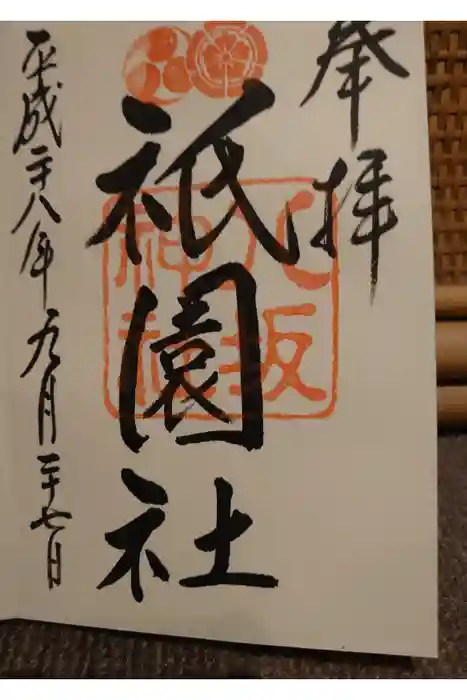 奉拝
祇園社
八坂神社
平成二十八年九月二十七日